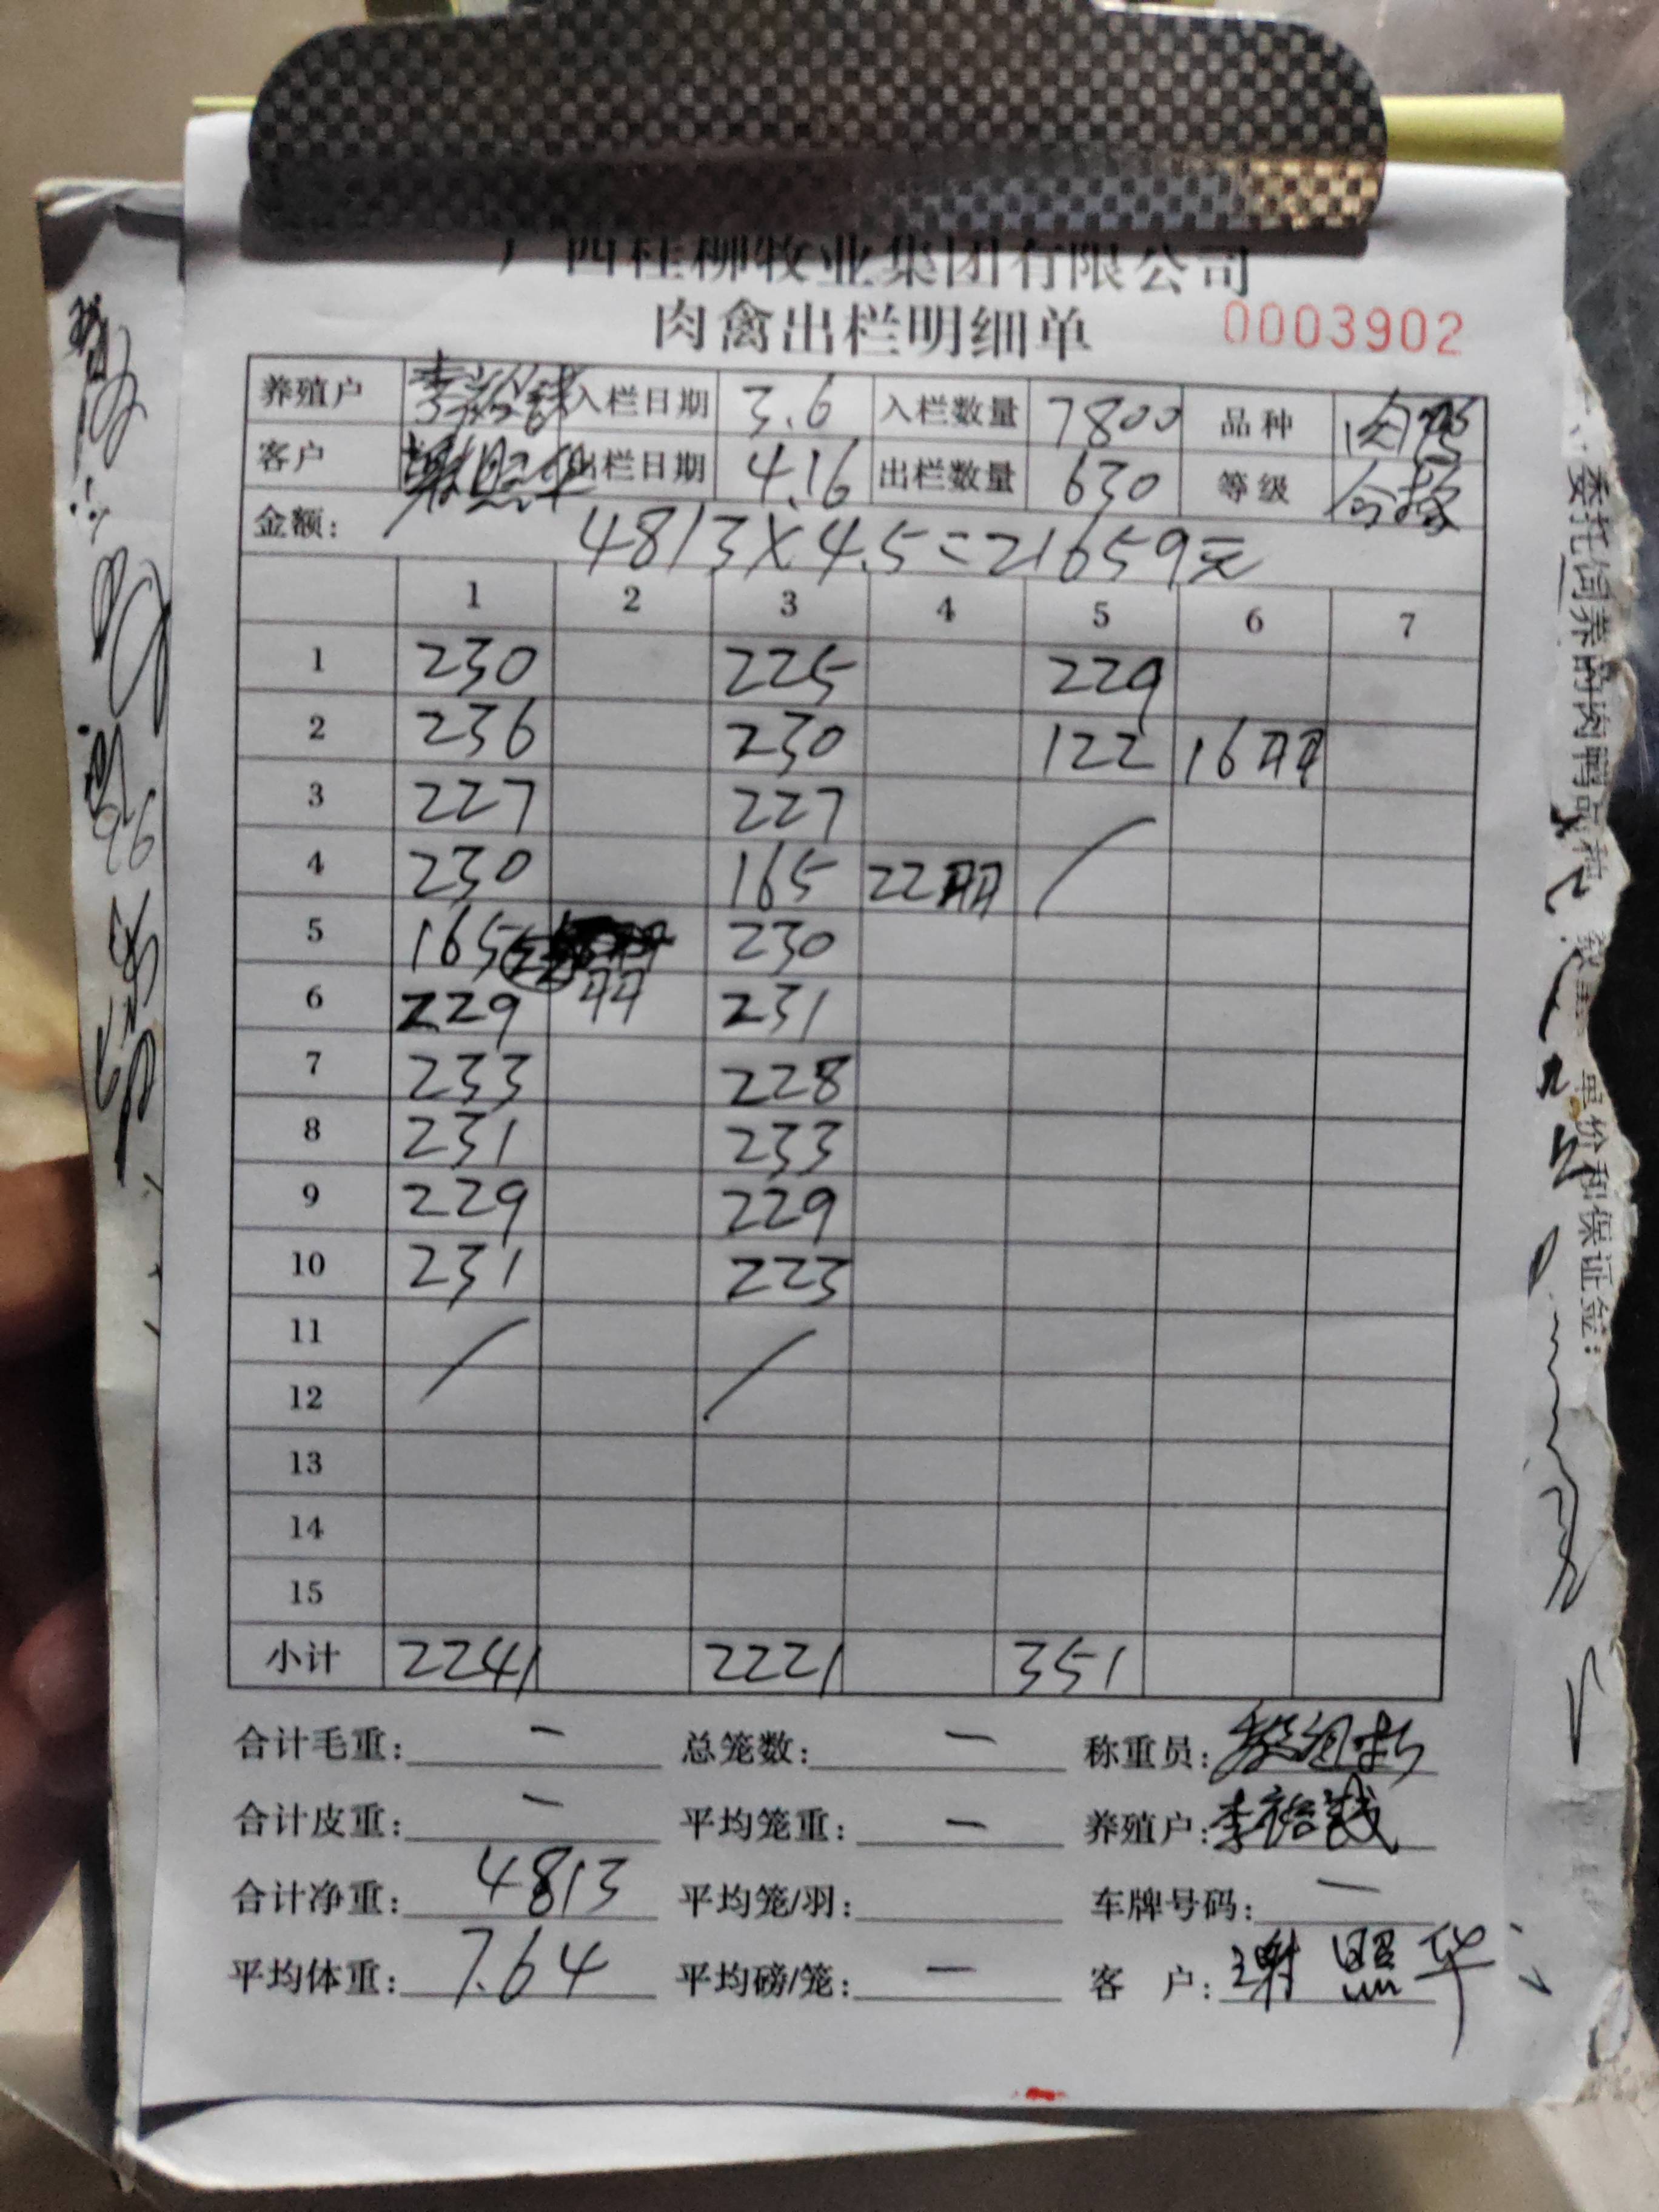 广西桂柳牧业集团有限公司
肉禽出栏明细单 0003902
养殖户 李裕钱 入栏日期 3.6 入栏数量 7800 品种 肉鸭
客户 谢照华 出栏日期 4.16 出栏数量 630 等级 合格
金额： 4813×4.5=21659元
1 2 3 4 5 6 7
1 230 225 229
2 236 230 122 16只
3 227 227
4 230 165 22只
5 165 230
6 229 231
7 233 228
8 231 233
9 229 229
10 231 223
11
12
13
14
15
小计 2241 2221 351
合计毛重： — 总笼数： — 称重员：
合计皮重： — 平均笼重： — 养殖户：李裕钱
合计净重： 4813 平均笼/羽： 车牌号码： —
平均体重： 7.64 平均磅/笼： — 客 户：谢照华
委托饲养的肉鸭品种
单价和保证金：